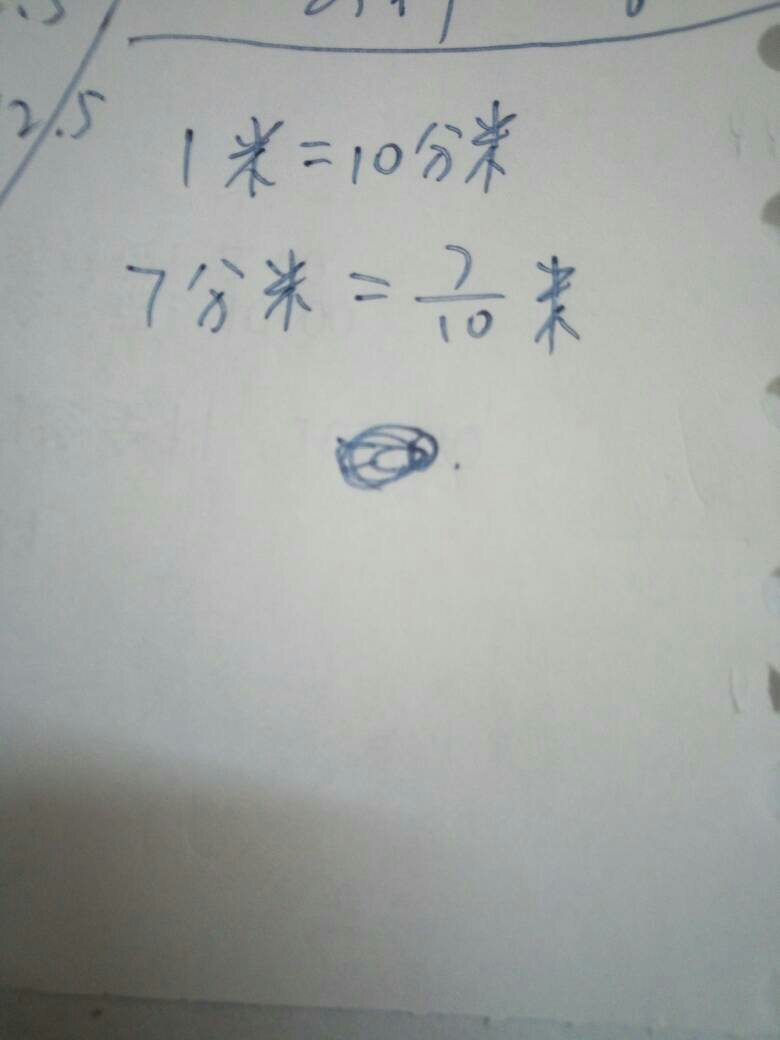 2.5
1米=10分米
7分米=7/10米